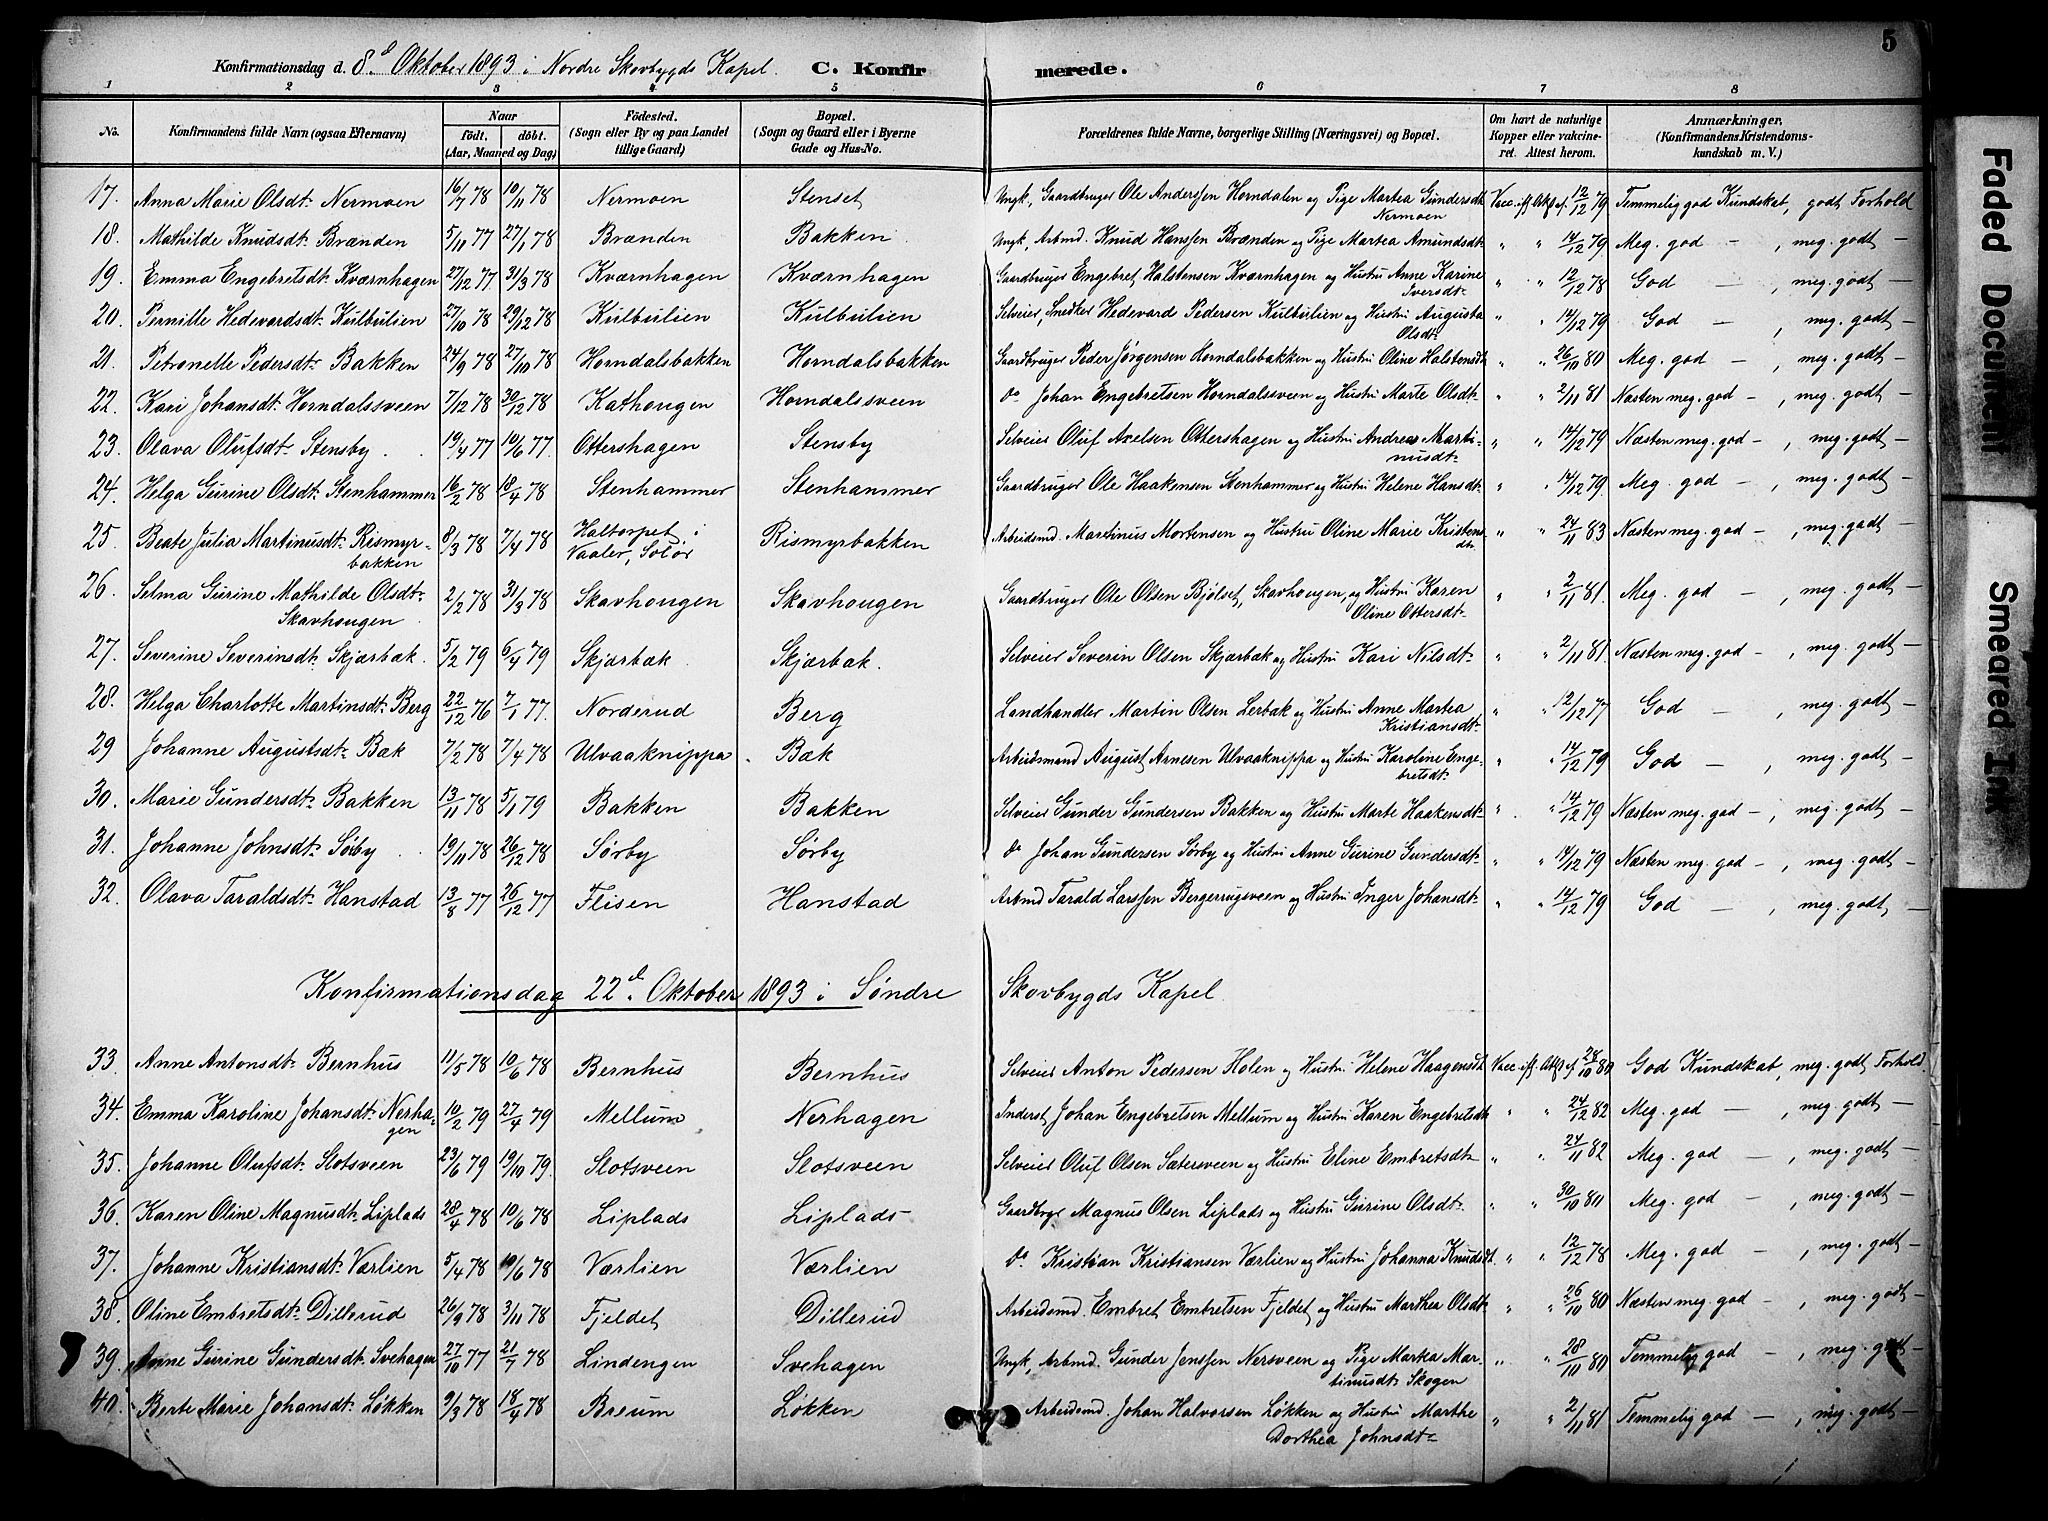 5
Konfirmationsdag d. 8d Oktober 1893 i Nordre Skovbygds Kapel. C. Konfirmerede.
1 2 3 4 5 6 7 8
No. Konfirmandens fulde Navn (ogsaa Efternavn) Naar födt. döbt. (Aar, Maaned og Dag) Födested. (Sogn eller By og paa Landet tillige Gaard) Bopæl. (Sogn og Gaard eller i Byerne Gade og Hus-No. Forældrenes fulde Navne, borgerlige Stilling (Næringsvei) og Bopæl. Om havt de naturlige Kopper eller vakcineret. Attest herom. Anmærkninger. (Konfirmandens Kristendomskundskab m. V.)
17. Anna Marie Olsdt. Nermoen 16/7 78 10/11 78 Nermoen Stenset Ungk, Gaardbruger Ole Anderssen Horndalen og Pige Martea Gundersdt. Nermoen Vacc. ifl. Att. af 12/12 79 Temmelig god Kundskab, godt Forhold
18. Mathilde Knudsdt. Brænden 5/11 77 27/1 78 Brænden Bakken Ungk, Arbmd. Knud Hanssen Brænden og Pige Martea Amundsdt. " " 14/12 79 Meg. god — , meg. godt —
19. Emma Engebretsdt. Kværnhagen 27/12 77 31/3 78 Kværnhagen Kværnhagen Gaardbruger Engebret Halstensen Kværnhagen og Hustru Anne Karine Iversdt. " " 12/12 78 God — , meg. godt —
20. Pernille Hedevardsdt. Kulbulien 27/10 78 29/12 78 Kulbulien Kulbulien Selveier, Snedker Hedevard Pedersen Kulbulien og Hustru Augusta Olsdt. " " 14/12 79 God — , meg. godt —
21. Petronelle Pedersdt. Bakken 24/9 78 27/10 78 Horndalsbakken Horndalsbakken Gaardbruger Peder Jørgensen Horndalsbakken og Hustru Oline Halstensdt. " " 26/10 80 Meg. god — , meg. godt —
22. Kari Johansdt. Horndalssveen 7/12 78 30/12 78 Kathougen Horndalssveen do Johan Engebretsen Horndalssveen og Hustru Marte Olsdt. " " 2/11 81 Næsten meg. god — , meg. godt —
23. Olava Olufsdt. Stensby 19/4 77 10/6 77. Ottershagen Stensby Selveier Oluf Axelsen Ottershagen og Hustru Andrea Martinusdt. " " 14/12 79 Næsten meg. god — , meg. godt —
24. Helga Gurine Olsdt. Stenhammer 16/2 78 18/4 78 Stenhammer Stenhammer Gaardbruger Ole Haakensen Stenhammer og Hustru Helene Hansdt. " " 14/12 79 Meg. god — , meg. godt —
25. Beate Julia Martinusdt. Rismyrbakken 8/3 78 7/4 78 Haltorpet i Vaaler, Solør Rismyrbakken Arbeidsmd. Martinus Mortensen og Hustru Oline Marie Kristensdt. " " 24/11 83 Næsten meg. god — , meg. godt —
26. Selma Gurine Mathilde Olsdt. Skavhougen 2/2 78 31/3 78 Skavhougen Skavhougen Gaardbruger Ole Olsen Bjølset, Skavhougen, og Hustru Karen Oline Ottersdt. " " 2/11 81. Meg. god — , meg. godt —
27. Severine Severinsdt. Skjærbæk. 5/2 79 6/4 79 Skjærbæk. Skjærbæk. Selveier Severin Olsen Skjærbæk og Hustru Kari Nilsdt. " " 2/11 81 Næsten meg. god — , meg. godt —
28. Helga Charlotte Martinsdt. Berg 22/12 76 7/1 77. Norderud Berg Landhandler Martin Olsen Lerbæk og Hustru Anne Martea Kristiansdt. " " 12/12 77 God — , meg. godt —
29 Johanne Augustsdt. Bæk 7/2 78 7/4 78 Ulvaaknippa Bæk Arbeidsmand August Arnesen Ulvaaknippa og Hustru Karoline Engebretsdt. " " 14/12 79 God — , meg. godt —
30. Marie Gundersdt. Bakken 13/11 78 5/1 79 Bakken Bakken Selveier Gunder Gundersen Bakken og Hustru Marte Haakensdt. " " 14/12 79 Næsten meg. god — , meg. godt —
31. Johanne Johnsdt. Sørby 19/11 78 26/12 78 Sørby Sørby do Johan Gundersen Sørby og Hustru Anne Gurine Gundersdt. " " 14/12 79 Næsten meg. god — , meg. godt —
32. Olava Taraldsdt. Hanstad 13/8 77 26/12 77 Flisen Hanstad Arbmd Tarald Larssen Bergerrugsveen og Hustru Inger Johansdt. " " 14/12 79 God — , meg. godt —
Konfirmationsdag 22d Oktober 1893 i Søndre Skovbygds Kapel.
33. Anne Antonsdt. Bernhus 11/5 78 10/6 78 Bernhus Bernhus Selveier Anton Pedersen Holen og Hustru Helene Haagensdt. Vacc. ifl. Att. af 28/10 80 God Kundskab, meg. godt Forhold
34. Emma Karoline Johansdt. Nerhagen 10/2 79 27/4 79 Mellum Nerhagen Inderst Johan Engebretsen Mellum og Hustru Karen Engebretsdt. " " 24/12 82 Meg. god — , meg. godt —
35. Johanne Olufsdt. Slotsveen 23/6 79 19/10 79. Slotsveen Slotsveen Selveier Oluf Olsen Sætersveen og Hustru Eline Embretsdt. " " 24/11 82 Meg. god — , meg. godt —
36. Karen Oline Magnusdt. Liplads 28/4 78 10/6 78 Liplads Liplads Gaardbgr Magnus Olsen Liplads og Hustru Gurine Olsdt. " " 30/10 80 Meg. god — , meg. godt —
37. Johanne Kristiansdt. Værlien 5/4 78 10/6 78 Værlien Værlien do Kristian Kristiansen Værlien og Hustru Johanna Knudsdt. " " 12/12 78 Meg. god — , meg. godt —
38. Oline Embretsdt. Dillerud 26/9 78 3/11 78 Fjeldet Dillerud Arbeidsmd. Embret Embretsen Fjeldet og Hustru Marthea Olsdt. " " 26/10 80 Næsten meg. god — , meg. godt —
39. Anne Gurine Gundersdt. Svehagen 27/10 77 21/7 78 Lindengen Svehagen Ungk, Arbmd. Gunder Jenssen Nersveen og Pige Martea Martinusdt. Skogen " " 28/10 80 Temmelig god — , meg. godt —
40. Berte Marie Johansdt. Løkken 9/3 78 18/4 78 Breum Løkken Arbeidsmd. Johan Halvorsen Løkken og Hustru Marthe Dorthea Johnsdt. " " 2/11 81 Temmelig god — , meg. godt —
Faded Document
Smeared Ink